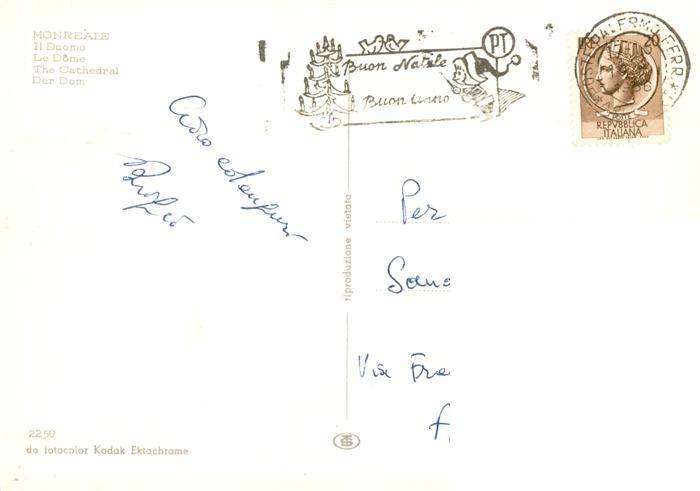 MONREALE
Il Duomo
Le Dôme
The Cathedral
Der Dom
Buon Natale
Buon anno
PT
PALERMO FERR
POSTE
REPVBBLICA
ITALIANA
riproduzione vietata
Per
Sano
Via Fra
f.
2250
da fotocolor Kodak Ektachrome